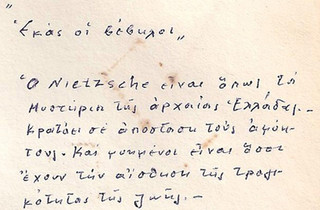 "
Ἑκὰς οἱ βέβηλοι„
Ὁ Nietzsche εἶναι ὅπως τὰ
Μυστήρια τῆς ἀρχαίας Ἑλλάδας.–
Κρατάει σὲ ἀπόσταση τοὺς ἀμύη-
τους. Καὶ μυημένοι εἶναι ὅσοι
ἔχουν τὴν αἴσθηση τῆς τραγι-
κότητας τῆς ζωῆς.–